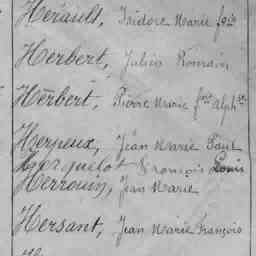 Hérault, Isidore Marie fois
Herbert, Julien Romain
Herbert, Pierre Marie fois Alph
Herpeux, Jean Marie Paul
Herquelot François Louis
Herrouin, Jean Marie
Hersant, Jean Marie François